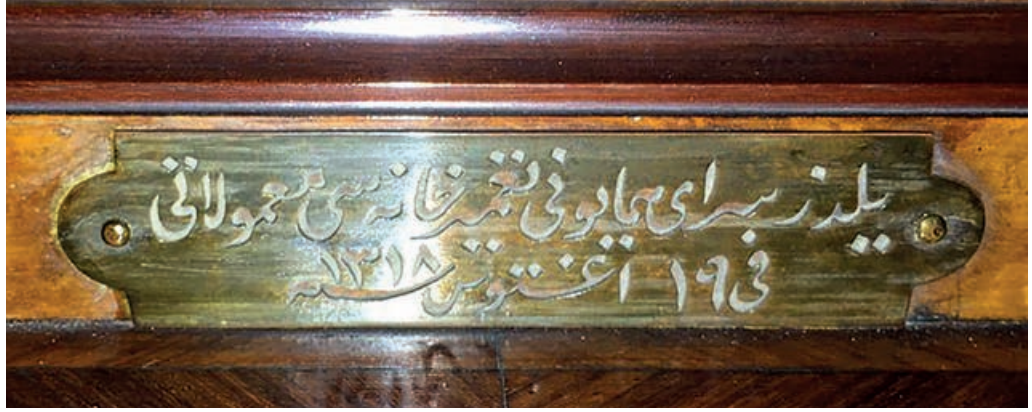 یلدز سرای همایونی تعمیرخانه سی معمولاتی
فی ١٩ اغستوس سنه ١٣١٨